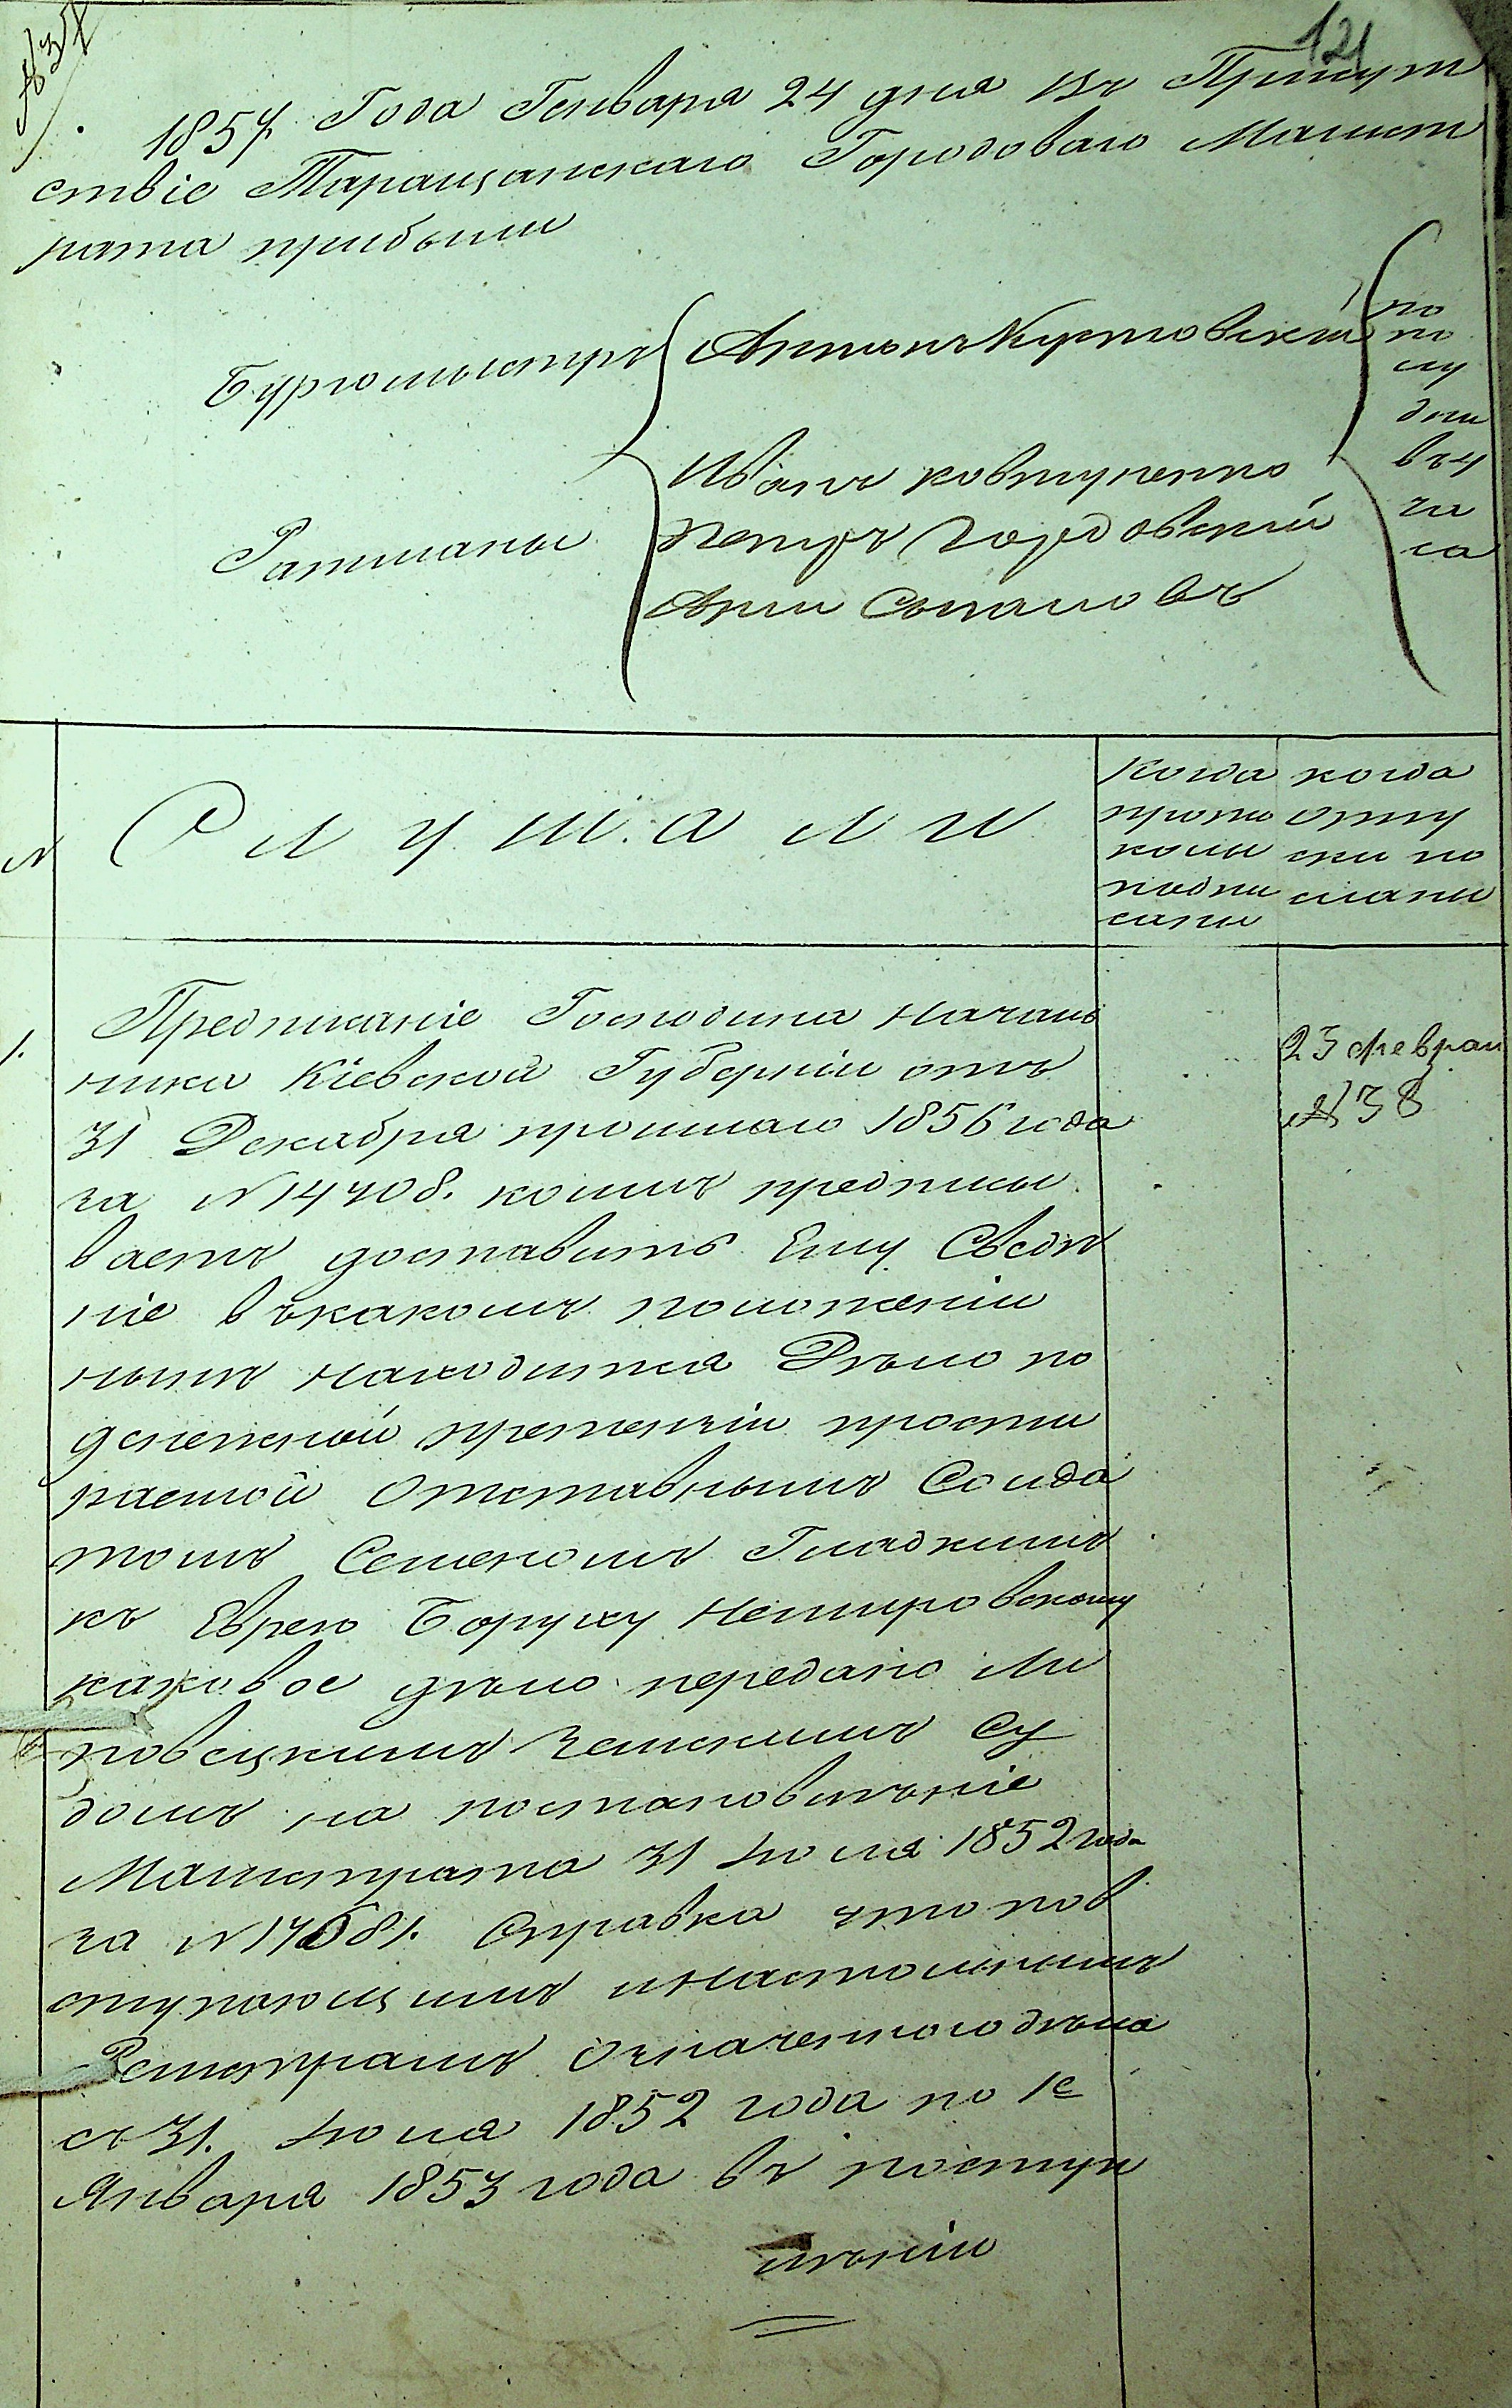 № 37
121
1857 Года Генваря 24 дня Въ Присут
ствіе Таращанскаго Городоваго Магист
рата прибыли
Бургомыстръ Антонъ Кустовскій
Ратманы
Иванъ ковтуненко
Петръ Гордовскій
Анш
по по лу дни въ ча са
№
Слушали
Когда прото колы подпи саны
когда отпу ски по сланы
1.
Предписаніе Господина Началь
ника Кіевской Губерніи отъ
31 Декабря прошлаго 1856 года
за № 14708. коимъ предписы
ваетъ доставить Ему Сведѣ
ніе въ какомъ положеніи
нынѣ находится Дѣло по
денежной претензіи прости
раемой Отставнымъ Солда
томъ Семеномъ Гладкимъ
къ Еврею Боруху Немировскому
каковое дѣло передано Ли
повецкимъ Земскимъ Су
домъ на постановленіе
Магистрата 31 Іюля 1852 года
за № 17081. Справка что по в
ступающимъ и настольнымъ
Реестрамъ означенного дѣла
съ 31. Іюля 1852 года по 1е
Января 1853 года въ поступ
лѣніи
23 Феврал
№ 38